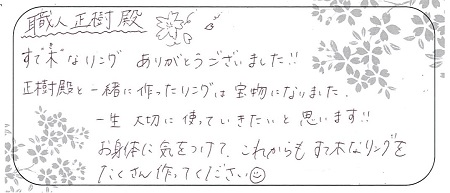 職人正樹殿
すて木なリング ありがとうございました!!
正樹殿と一緒に作ったリングは宝物になりました.
一生大切に使っていきたいと思います!!
お身体に気をつけて、これからもすて木なリングを
たくさん作ってください☺